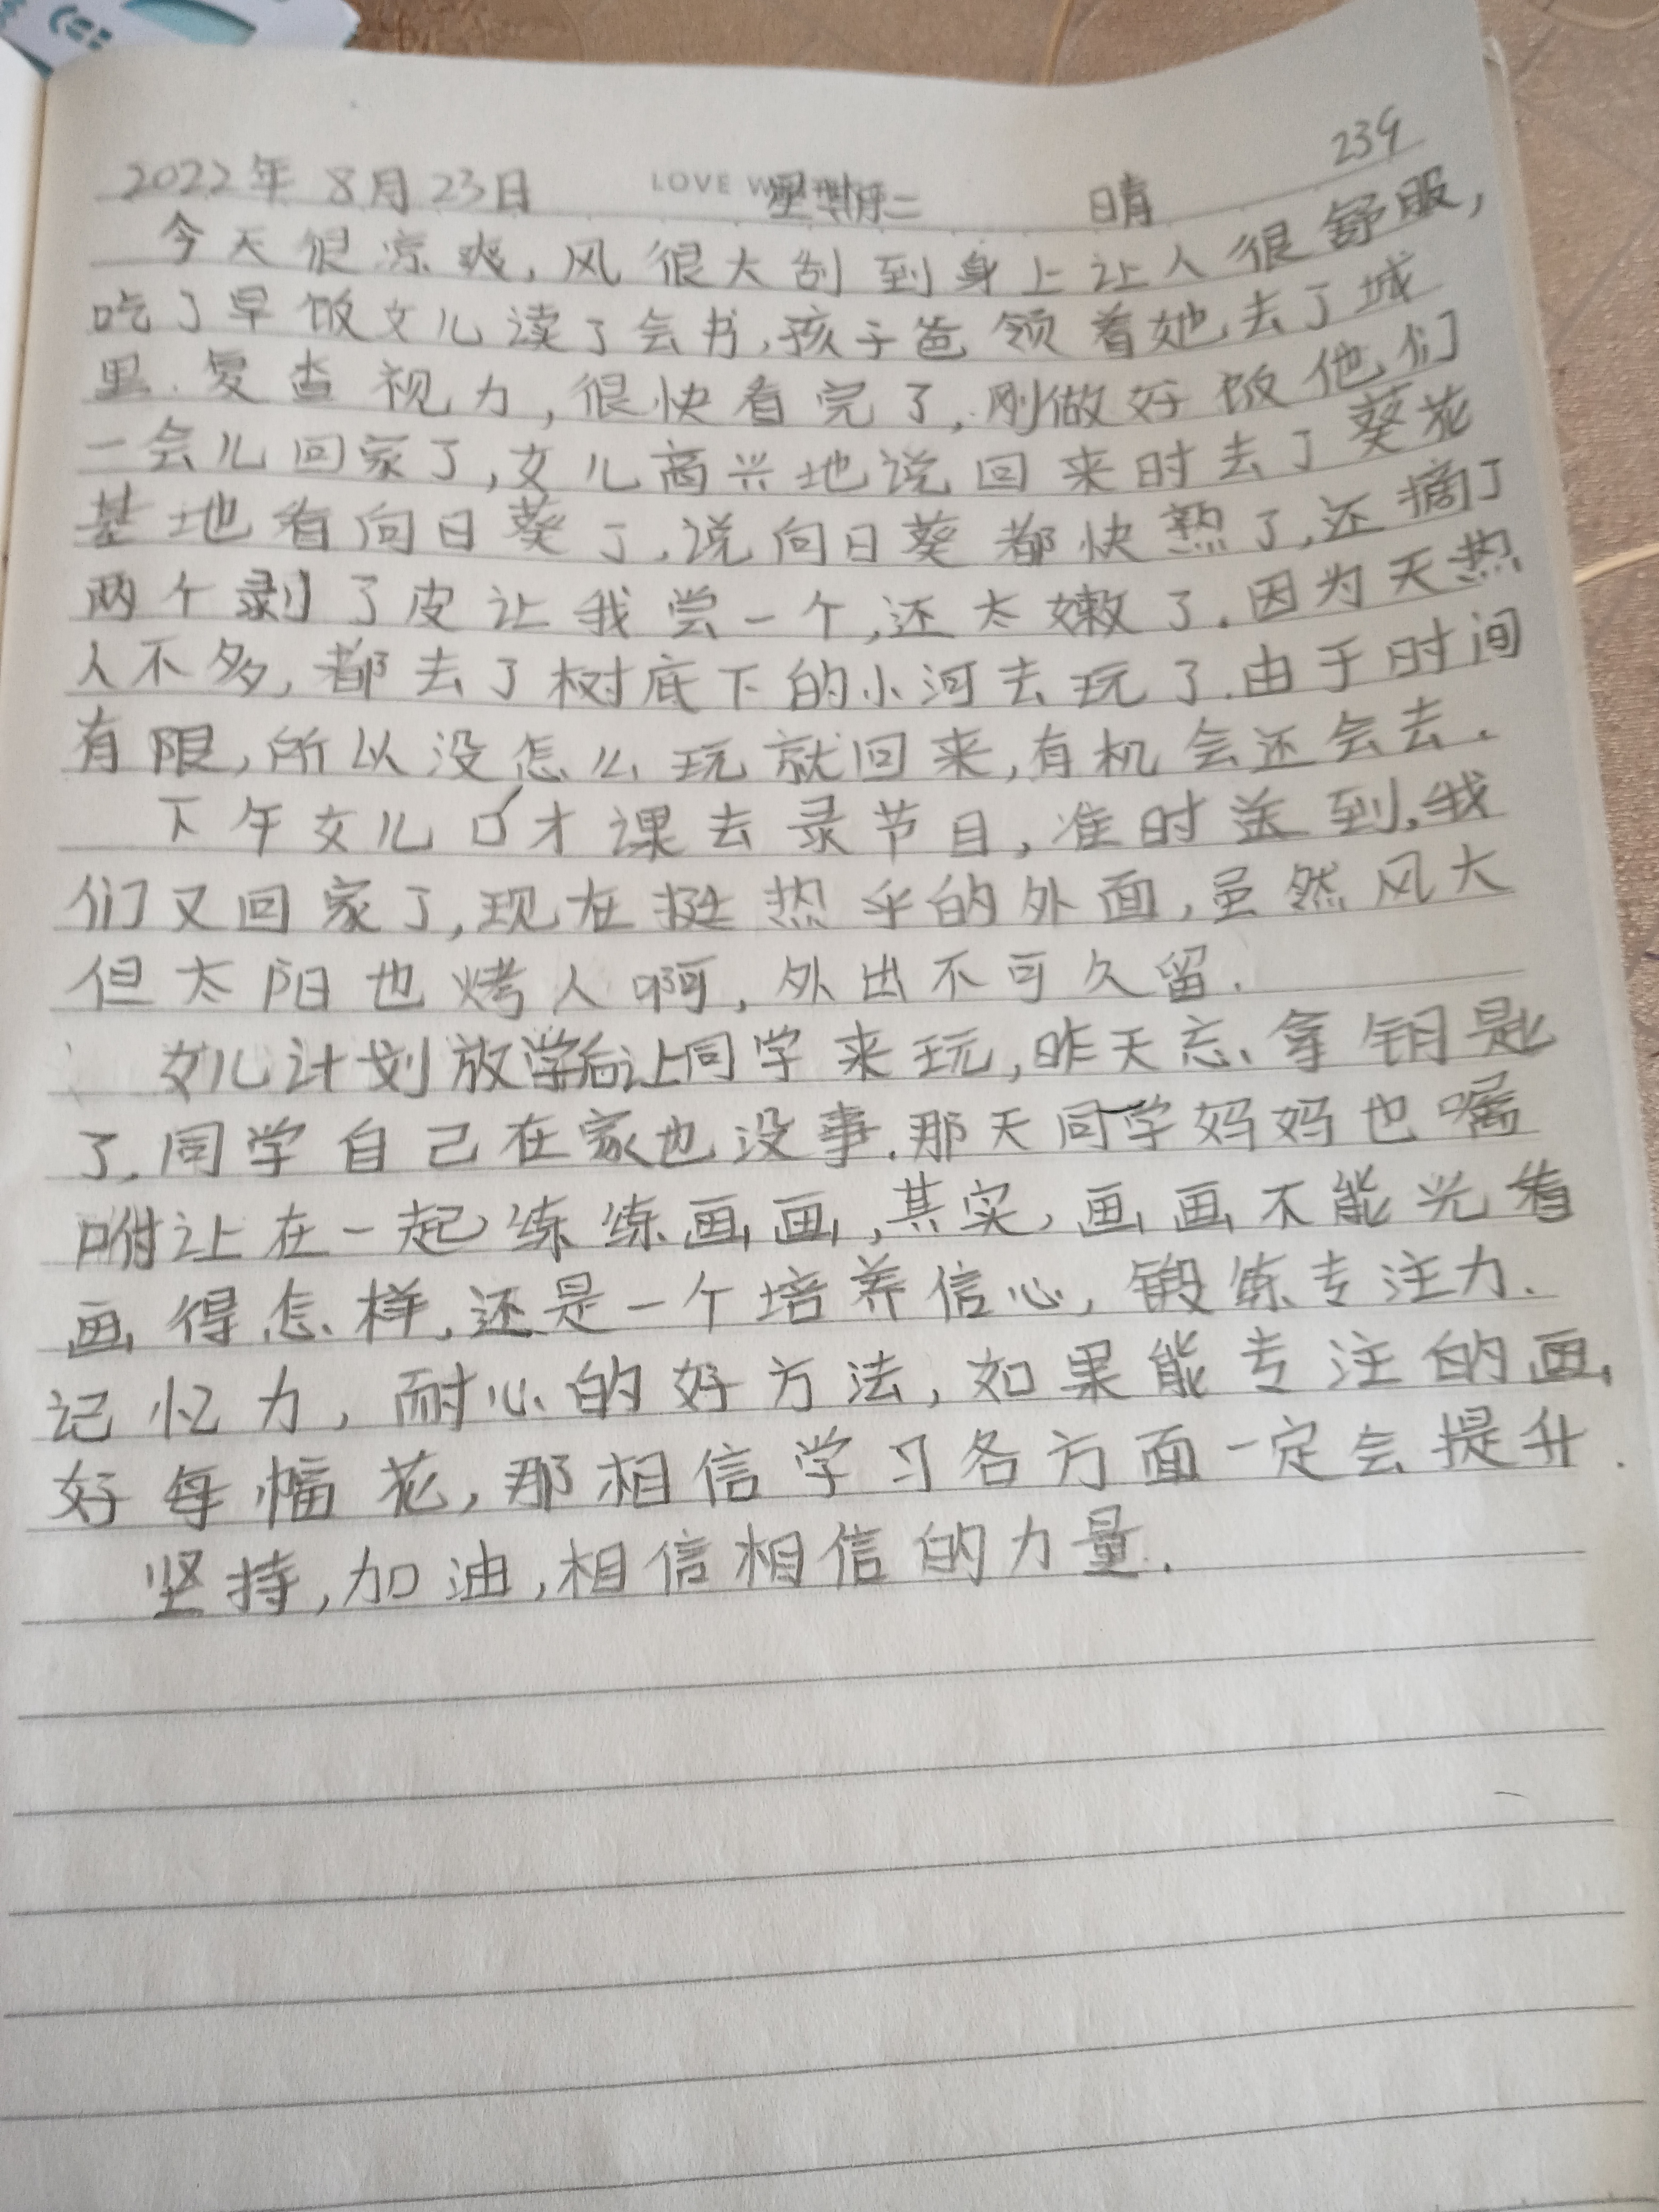 239
2022年 8月23日 LOVE 星期二 晴
今天很凉爽,风很大刮到身上让人很舒服,
吃了早饭女儿读了会书,孩子爸领着她去了城
里.复查视力,很快看完了,刚做好饭他们
一会儿回家了,女儿高兴地说回来时去了葵花
基地看向日葵了,说向日葵都快熟了,还摘了
两个剥了皮让我尝一个,还太嫩了.因为天热
人不多,都去了树底下的小河去玩了.由于时间
有限,所以没怎么玩就回来,有机会还会去.
下午女儿口才课去录节目,准时送到,我
们又回家了,现在挺热乎的外面,虽然风大
但太阳也烤人啊,外出不可久留.
女儿计划放学后让同学来玩,昨天忘拿钥匙
了.同学自己在家也没事.那天同学妈妈也嘱
咐让在一起练练画画,其实,画画不能光看
画得怎样,还是一个培养信心,锻练专注力.
记忆力,耐心的好方法,如果能专注的画
好每幅花,那相信学习各方面一定会提升.
坚持,加油,相信相信的力量.